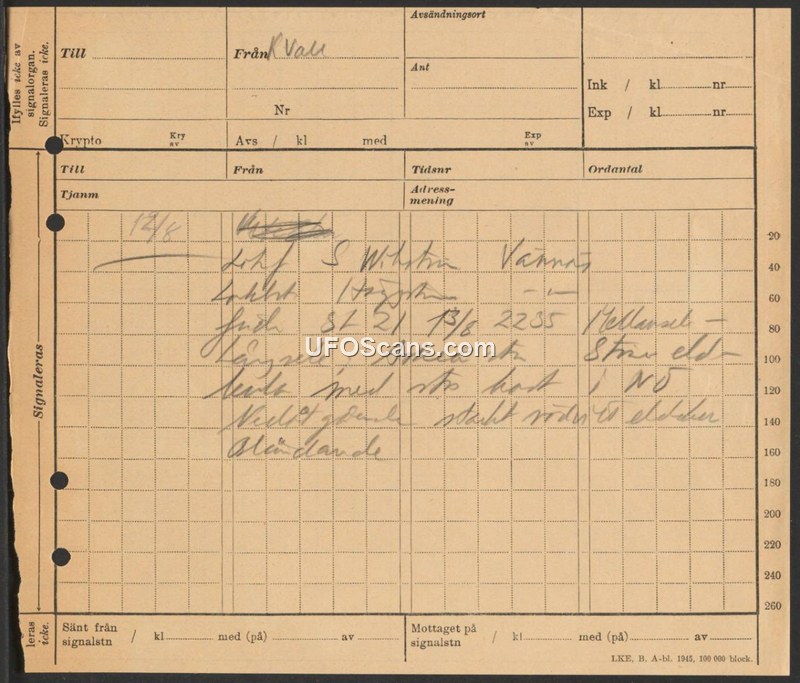 Ifylles icke av
signalorgan.
Signaleras icke.
Till
Från KVall
Avsändningsort
Ant
Ink / kl nr
Exp / kl nr
Nr
Krypto Kry av
Avs / kl med Exp av
Till Från Tidsnr Ordantal
Tjanm Adress-
mening
Signaleras
12/8
S Vännäs
21 13/8 2235 Mellansel -
Långsele Stor eld-
med stor hast i NÖ
Nedåtgående starkt
Bländande
UFOScans.com
20
40
60
80
100
120
140
160
180
200
220
240
260
leras
icke.
Sänt från
signalstn / kl med (på) av
Mottaget på
signalstn / kl med (på) av
LKE, B. A-bl. 1945, 100 000 block.